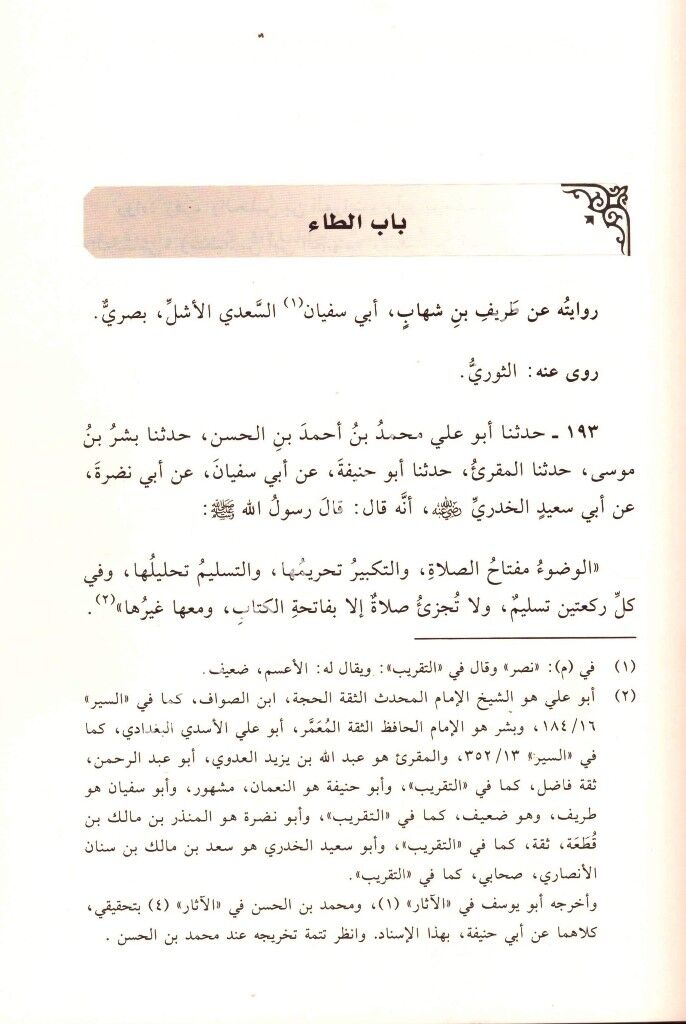 باب الطاء
روايتُه عن طَريفِ بنِ شهابٍ، أبي سفيان(١) السَّعدي الأشلِّ، بصريٌّ.
روى عنه: الثوريُّ.
١٩٣ ـ حدثنا أبو علي محمدُ بنُ أحمدَ بنِ الحسن، حدثنا بشرُ بنُ
موسى، حدثنا المقرئُ، حدثنا أبو حنيفةَ، عن أبي سفيانَ، عن أبي نضرةَ،
عن أبي سعيدٍ الخدريِّ رضي الله عنه، أنَّه قال: قالَ رسولُ الله ﷺ:
«الوضوءُ مفتاحُ الصلاةِ، والتكبيرُ تحريمُها، والتسليمُ تحليلُها، وفي
كلِّ ركعتين تسليمٌ، ولا تُجزئُ صلاةٌ إلا بفاتحةِ الكتابِ، ومعها غيرُها»(٢).
(١) في (م): «نصر» وقال في «التقريب»: ويقال له: الأعسم، ضعيف.
(٢) أبو علي هو الشيخ الإمام المحدث الثقة الحجة، ابن الصواف، كما في «السير»
١٨٤/١٦، وبشر هو الإمام الحافظ الثقة المُعَمَّر، أبو علي الأسدي البغدادي، كما
في «السير» ٣٥٢/١٣، والمقرئ هو عبد الله بن يزيد العدوي، أبو عبد الرحمن،
ثقة فاضل، كما في «التقريب»، وأبو حنيفة هو النعمان، مشهور، وأبو سفيان هو
طريف، وهو ضعيف، كما في «التقريب»، وأبو نضرة هو المنذر بن مالك بن
قُطَعَة، ثقة، كما في «التقريب»، وأبو سعيد الخدري هو سعد بن مالك بن سنان
الأنصاري، صحابي، كما في «التقريب».
وأخرجه أبو يوسف في «الآثار» (١)، ومحمد بن الحسن في «الآثار» (٤) بتحقيقي،
كلاهما عن أبي حنيفة، بهذا الإسناد. وانظر تتمة تخريجه عند محمد بن الحسن .